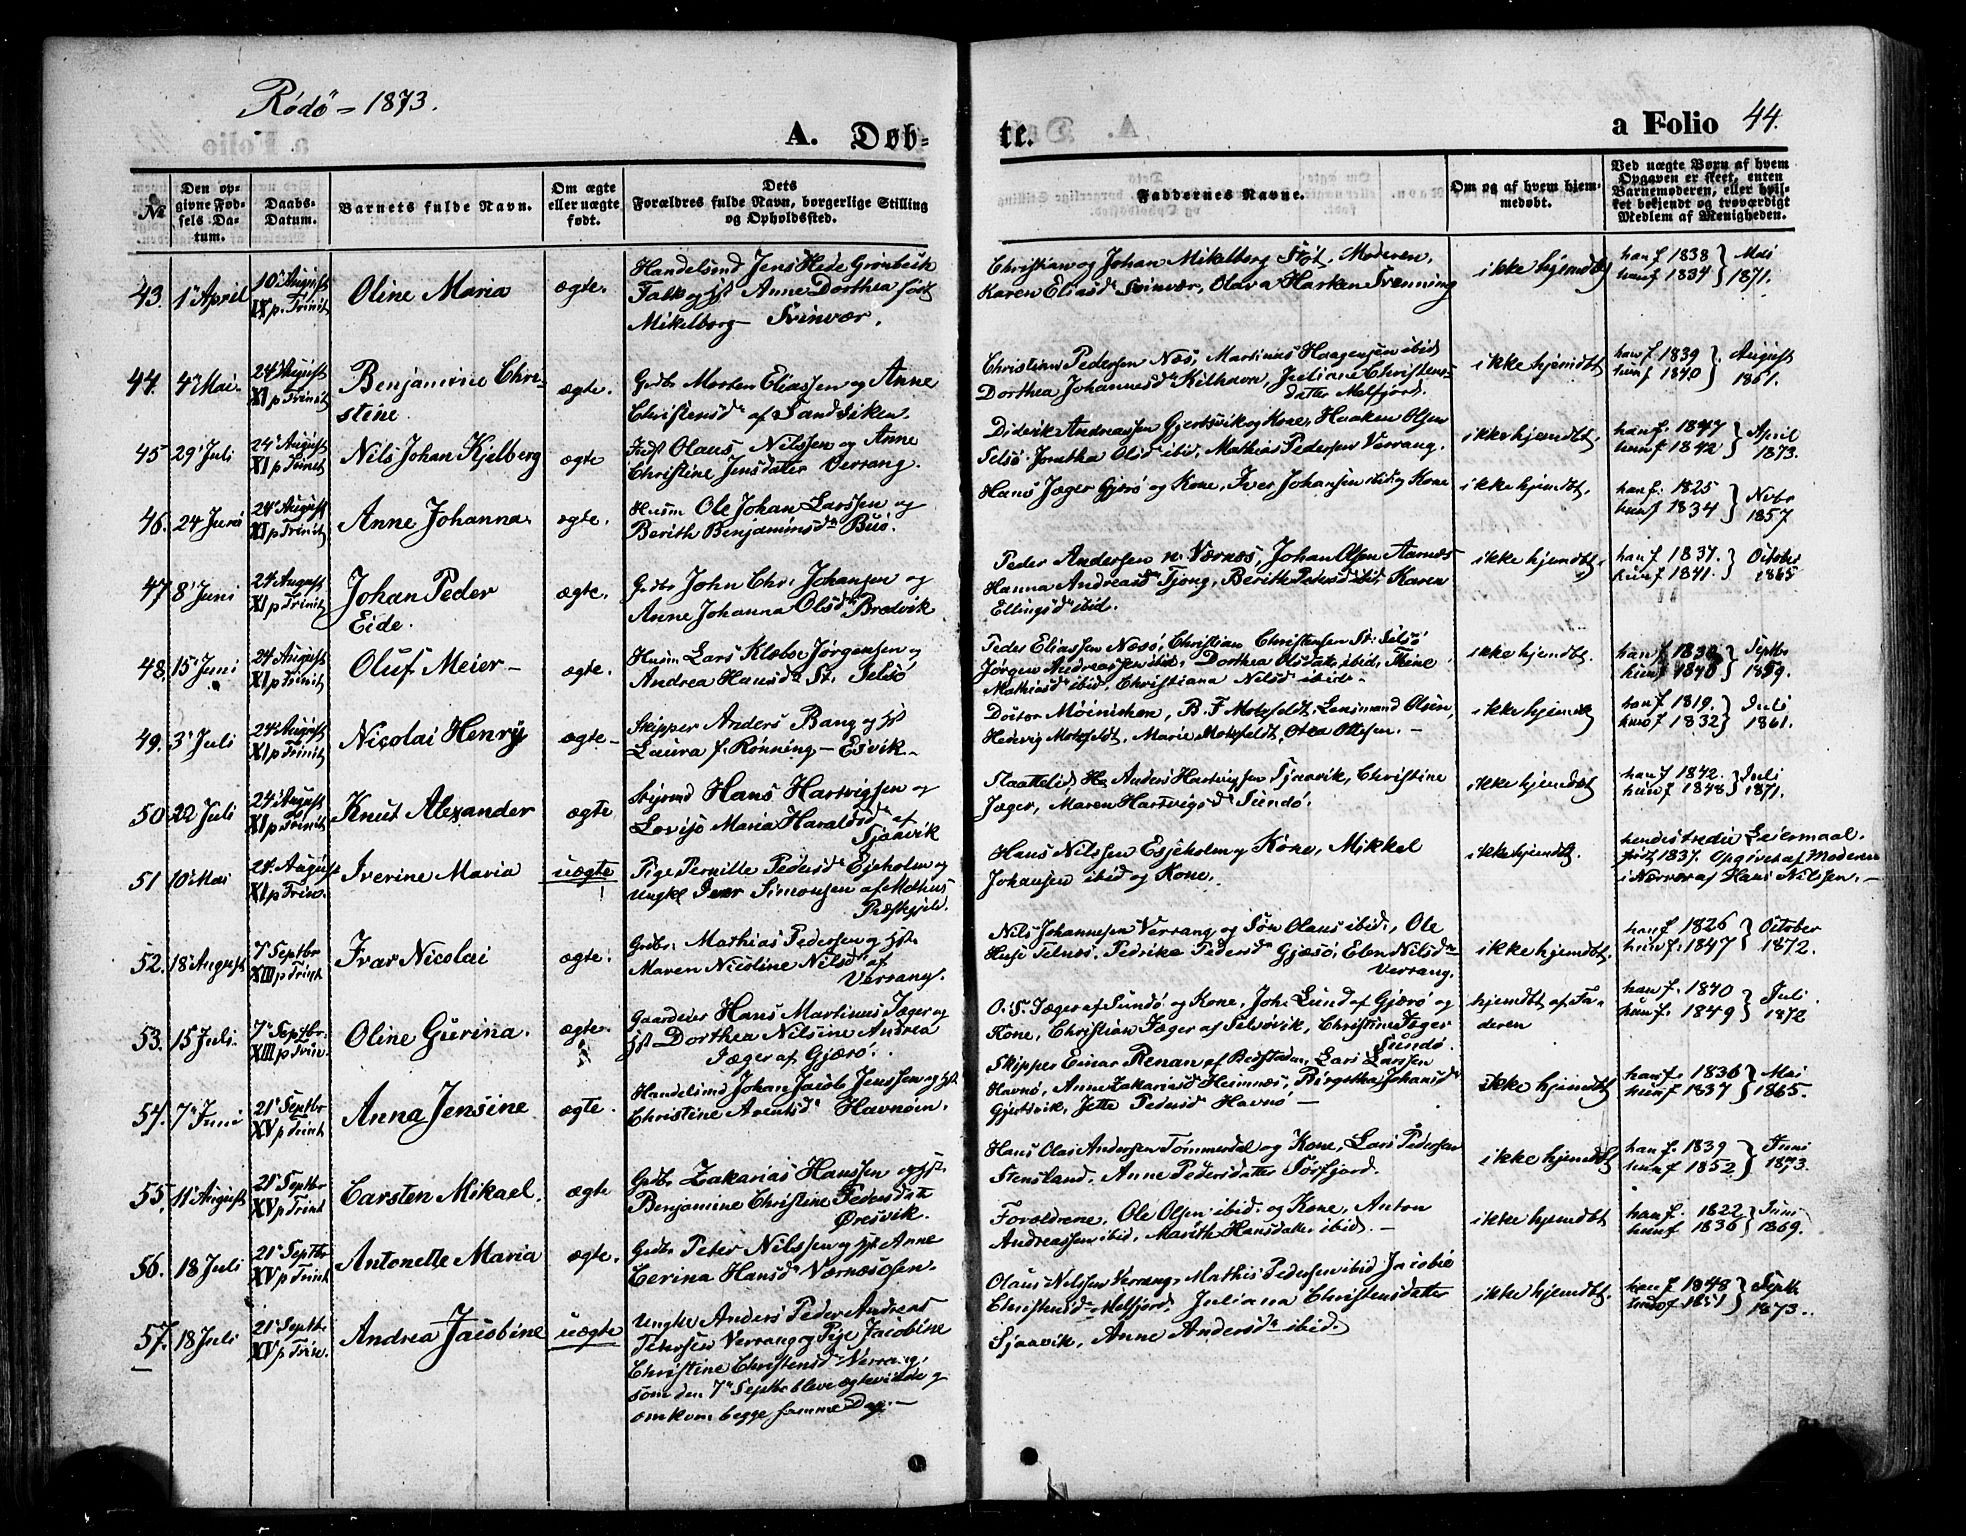 Rödö - 1873.
A. Døb-
te.
a Folio 44.
No
Den op-
givne Fød-
sels Da-
tum.
Daabs-
Datum.
Barnets fulde Navn.
Om ægte
eller uægte
født.
Dets
Forældres fulde Navn, borgerlige Stilling
og Opholdssted.
Faddernes Navne.
Om og af hvem hjem-
medøbt.
Ved uægte Børn af hvem
Opgaven er skeet, enten
Barnemoderen, eller hvil-
ket bekjendt og troværdigt
Medlem af Menigheden.
43. 1 April
10 August
IX p. Trinit
Oline Maria
ægte.
Handelsmd Jens Hede Grønbeck
Falk og Anne Dorthea født
Mikelborg - Svinvær.
Christian og Johan Mikelborg Støt, Moderen,
Karen Eliasd Svinvær, Olava Harken Svenning
ikke hjemdbt
han f. 1838 } Mai
hun f 1834 } 1871.
44. 4 Mai
24 August
XI p Trinit
Benjamine Chri-
stine.
ægte.
Gdbr Morten Eliassen og Anne
Christensd af Sandviken.
Christian Pedersen Næs, Martinus Haagensen ibid
Dorthea Johannesd Kilhavn, Juliane Christens-
datter Melfjord.
ikke hjemdbt
han f. 1839 } August
hun f 1840 } 1861.
45 29 Juli
24 August
XI p Trinit
Nils Johan Kjelberg
ægte
Indst Olaus Nilssen og Anne
Christine Jensdatter Værrang.
Didrik Andreassen Gjertsvik og Kone, Haaken Olsen
Selsø, Olsd ibid, Mathias Pedersen Værrang.
ikke hjemdbt.
han f. 1847 } April
hun f 1842 } 1873.
46. 24 Juni
24 August
XI p Trinit
Anne Johanna
ægte.
Husm Ole Johan Larssen og
Berith Benjaminsd Buø.
Hans Jæger Gjerø og Kone, Iver Johansen ibid og Kone
ikke hjemdbt,
han f. 1825 } Nvbr
hun f 1834 } 1857
47 8 Juni
24 August
XI p Trinit
Johan Peder
Eide.
ægte.
Gdbr John Chr. Johansen og
Anne Johanna Olsd Bredvik
Peder Andersen Værnæs, Johan Olsen Aarnæs
Hanna Andreasd Tjong, Berith Pedersd ibid, Karen
Ellingsd ibid.
ikke hjemdbt.
han f. 1837. } October
hun f 1841. } 1865
48. 15 Juni
24 August
XI p Trinit
Oluf Meier -
ægte.
Husm Lars Klæboe Jørgensen og
Andrea Hansd St. Selsö
Peder Eliassen Næsö, Christian Christensen St. Selsö
Jørgen Andreassen ibid, Dorthea Olsdatt ibid, Thine
Mathiasd ibid, Christiana Nilsd ibid -
ikke hjemdbt.
han f 1839 } Septbr
hun f 1840 } 1859.
49. 3 Juli
24 August
XI p Trinit
Nicolai Henry
ægte -
Skipper Anders Bang og
Laura f. Rønning - Esvik -
Doctor Möinichen, B. F Motzfeldt, Lensmand Olsen,
Hedvig Motzfeldt, Marie Motzfeldt, Ottesen. -
ikke hjemdbt
han f. 1819. } Juli
hun f 1832 } 1861.
50 22 Juli
24 August
XI p Trinit
Knut Alexander
ægte
Styrmd Hans Hartvigsen og
Lovise Maria Haraldsd af
Sjaavik
Anders Hartvigsen Sjaavik, Christine
Jæger, Maren Hartvigsd Sundö.
ikke hjemdøbt
han f 1842. } Juli
hun f 1848 } 1871.
51 10 Mai
24 August
XI p Trin.
Iverine Maria
uægte
Pige Pernille Pedersd Esjeholm og
Ungkl Iver Simonsen af Melhus
Præstegjeld.
Hans Nilssen Esjeholm og Kone, Mikkel
Johansen ibid og Kone.
ikke hjemdbt.
hendes tredie Leiermaal.
født 1837. Opgivet af Moderen
i Nærvær af Hans Nilsen. -
52. 18 August
7 Septbr
XIII p Trinit
Ivar Nicolai
ægte.
Gdbr. Mathias Pedersen og
Maren Nicoline Nilsd af
Værrang.
Nils Johannesen Værrang og Søn Olaus ibid, Ole
Huse Telnes, Pedrike Pedersd Gjæsö, Elen Nilsd
Værrang.
ikke hjemdbt.
han f 1826 } October
hun f. 1847 } 1872.
53. 15 Juli.
7 Septbr.
XIII p Trin.
Oline Gurina.
ægte.
Gaardeier Hans Martinus Jæger og
Dorthea Nilsine Andrea
Jæger af Gjærø.
O. S. Jæger af Sundö og Kone, Joh. Lund af Gjærø og
Kone, Christian Jæger af Selsövik, Christine Jæger
Sundö.
hjemdbt af Fa-
deren
han f. 1840 } Juli
hun f. 1849 } 1872
54. 7 Juni
21 Septbr
XV p Trint
Anna Jensine
ægte.
Handelsmd Johan Jacob Jenssen og
Christine Arentsd Havnøen.
Skipper Einar Renan af Bedstaden, Lars Larssen
Havnø, Anne Zakariasd Heimnæs, Birgitha Johansd
Gjertsvik, Jette Pedersd Havnø -
ikke hjemdbt
han f. 1836 } Mai
hun f 1837 } 1865.
55. 11 August
21 Septbr
XV p Trint
Carsten Mikael.
ægte
Gdbr Zakarias Hanssen og
Benjamine Christine Pedersdatt
Øresvik.
Hans Olai Andersen Tømmerdal og Kone, Lars Pedersen
Stensland, Anne Pedersdatter Sørfjord.
ikke hjemdbt
han f. 1839 } Juni
hun f. 1852 } 1873.
56. 18 Juli
21 Septbr
XV p Trint
Antonette Maria
ægte.
Gdbr Peter Nilssen og Anne
Cerina Hansd Værnæsosen.
Forældrene, Ole Olsen ibid. og Kone, Anton
Andreassen ibid, Marith Hansdatter ibid. -
ikke hjemdbt
han f. 1822 } Juni
hun f 1836 } 1869.
57. 18 Juli
21 Septbr
XV p Trin.
Andrea Jacobine
uægte
Ungkl Anders Peder Andreas
Petersen Værrang og Pige Jacobine
Christine Christensd Værrang,
som den 7 Septbr bleve ægteviede og
omkom begge samme Dag. -
Olaus Nilssen Værrang, Mathis Pedersen ibid Jacobie
Christensd Melfjord, Juliana Christensdatter
Sjaavik, Anne Andersd ibid.
ikke hjemdbt.
han f 1848 } Septb
hun f 1851 } 1873.